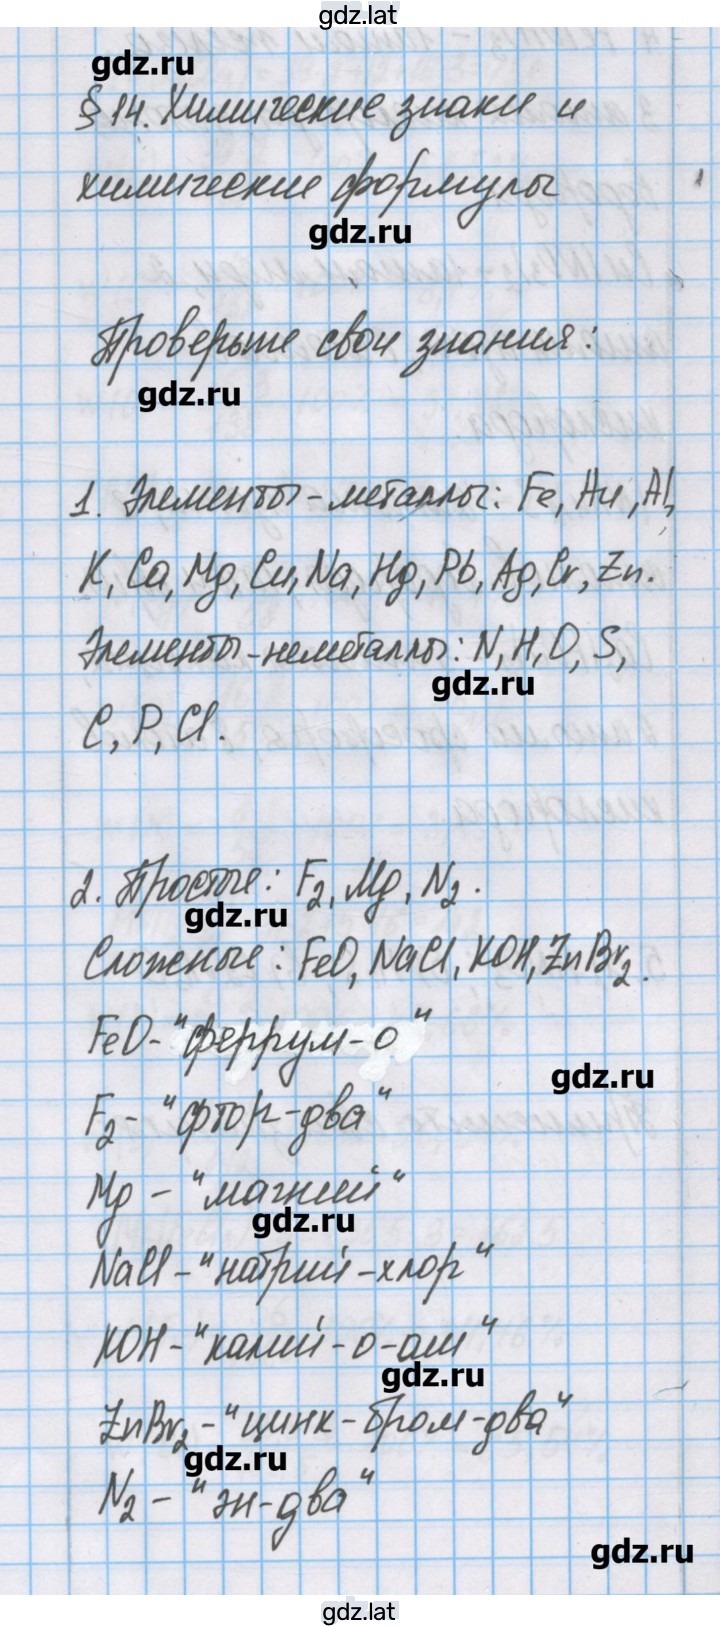 gdz.lat
gdz.ru
§ 14. Химические знаки и
химические формулы
gdz.ru
Проверьте свои знания:
gdz.ru
1. Элементы-металлы: Fe, Au, Al,
K, Ca, Mg, Cu, Na, Hg, Pb, Ag, Cr, Zn.
Элементы-неметаллы: N, H, O, S,
gdz.ru
C, P, Cl.
2. Простые: F₂, Mg, N₂.
gdz.ru
Сложные: FeO, NaCl, KOH, ZnBr₂.
FeO - "феррум-о"
gdz.ru
F₂ - "фтор-два"
Mg - "магний"
gdz.ru
NaCl - "натрий-хлор"
KOH - "калий-о-аш"
gdz.ru
ZnBr₂ - "цинк-бром-два"
gdz.ru
N₂ - "эн-два"
gdz.ru
gdz.lat